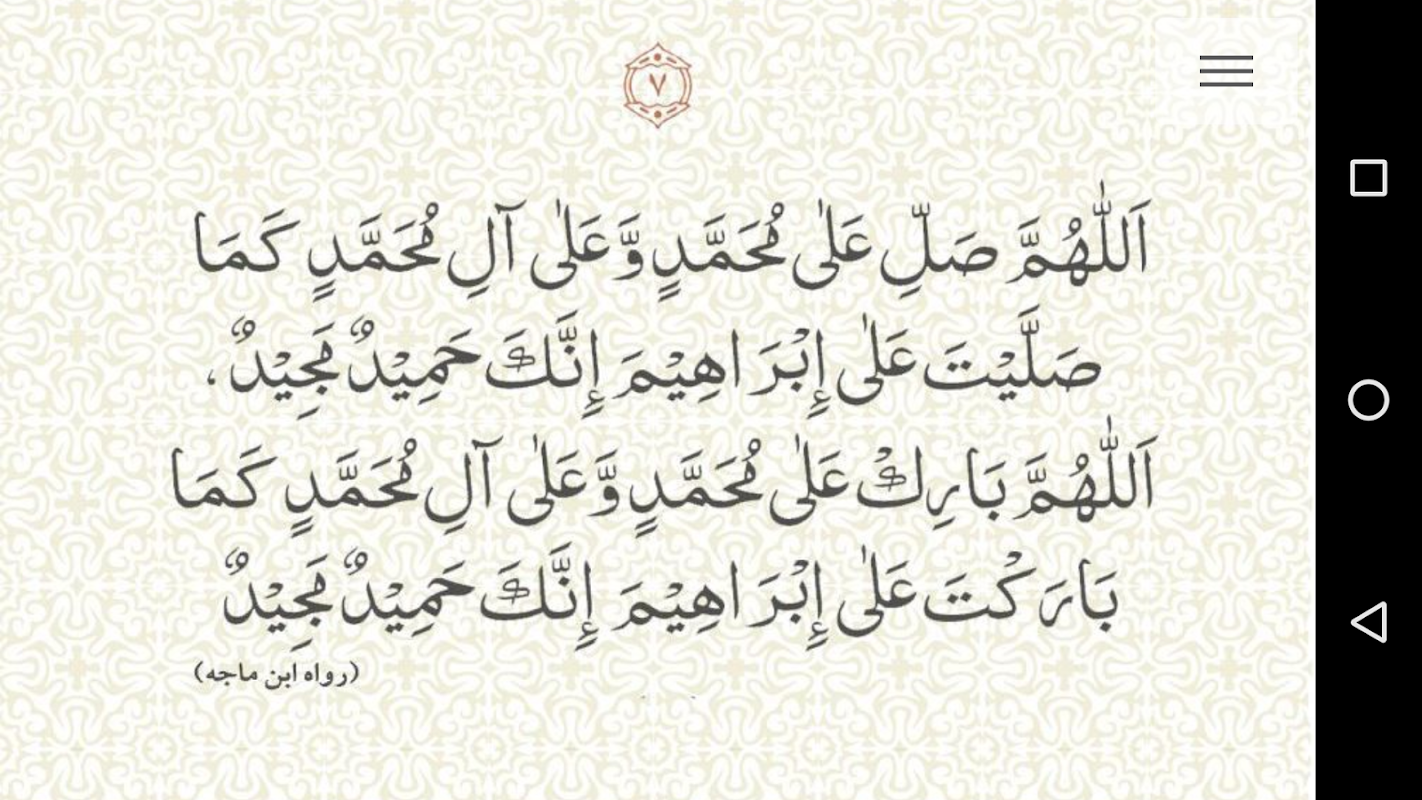 ٧
اَللّٰهُمَّ صَلِّ عَلٰى مُحَمَّدٍ وَّعَلٰى آلِ مُحَمَّدٍ كَمَا
صَلَّيْتَ عَلٰى إِبْرَاهِيْمَ إِنَّكَ حَمِيْدٌ مَجِيْدٌ،
اَللّٰهُمَّ بَارِكْ عَلٰى مُحَمَّدٍ وَّعَلٰى آلِ مُحَمَّدٍ كَمَا
بَارَكْتَ عَلٰى إِبْرَاهِيْمَ إِنَّكَ حَمِيْدٌ مَجِيْدٌ
(رواه ابن ماجه)